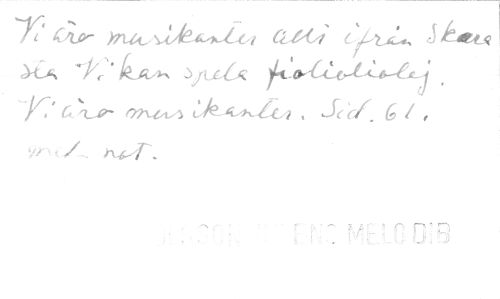 Vi äro musikanter allt ifrån Skara
sta Vi kan spela fiolioliolej.
Vi äro musikanter. Sid. 61.
med not.
MELODIB